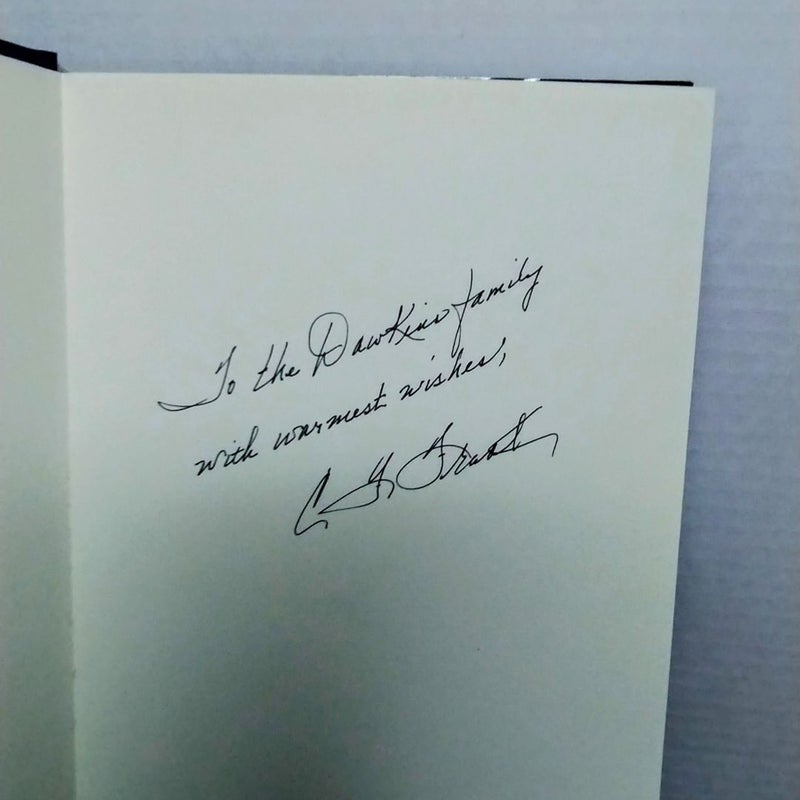 To the Dawkins family
with warmest wishes,